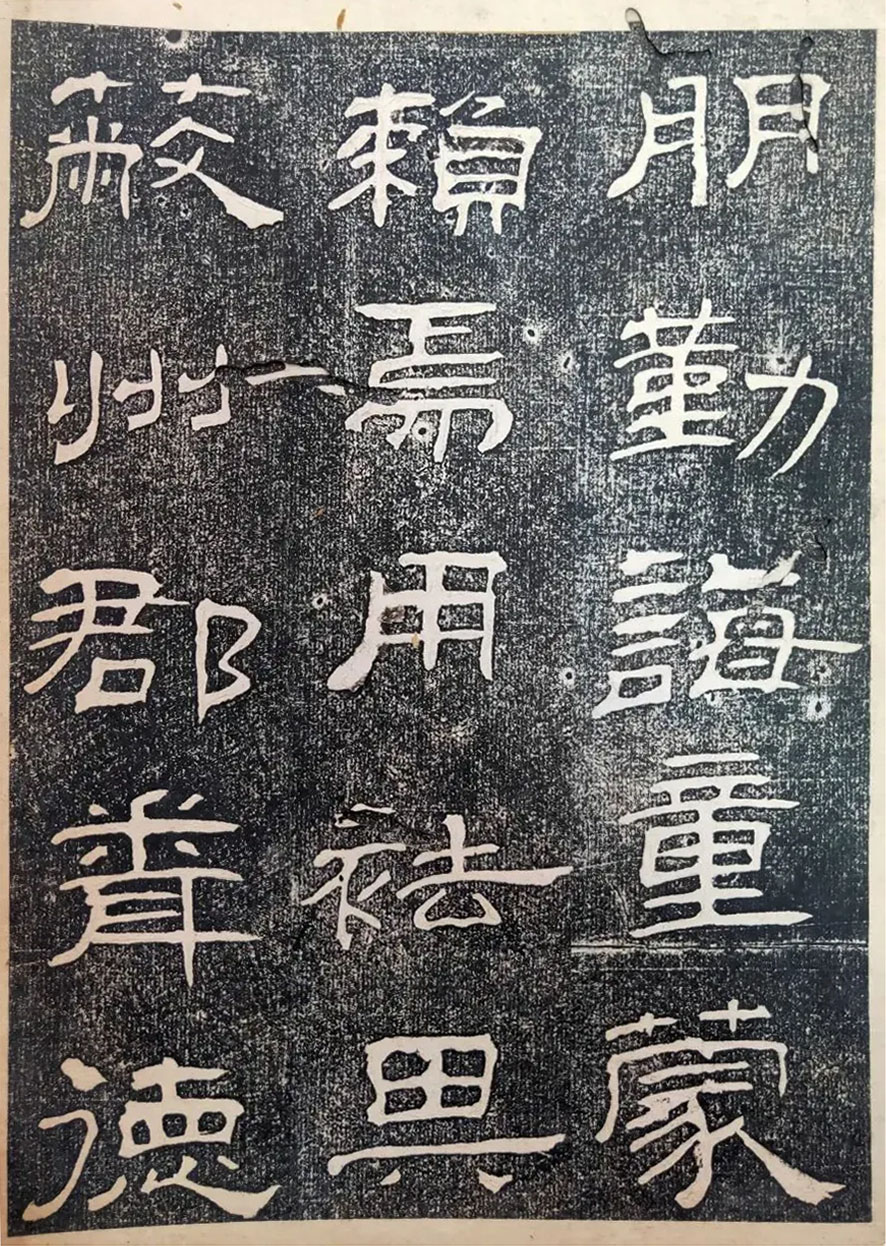 朋勤誨童蒙
賴焉用祛其
蔽州郡聞德